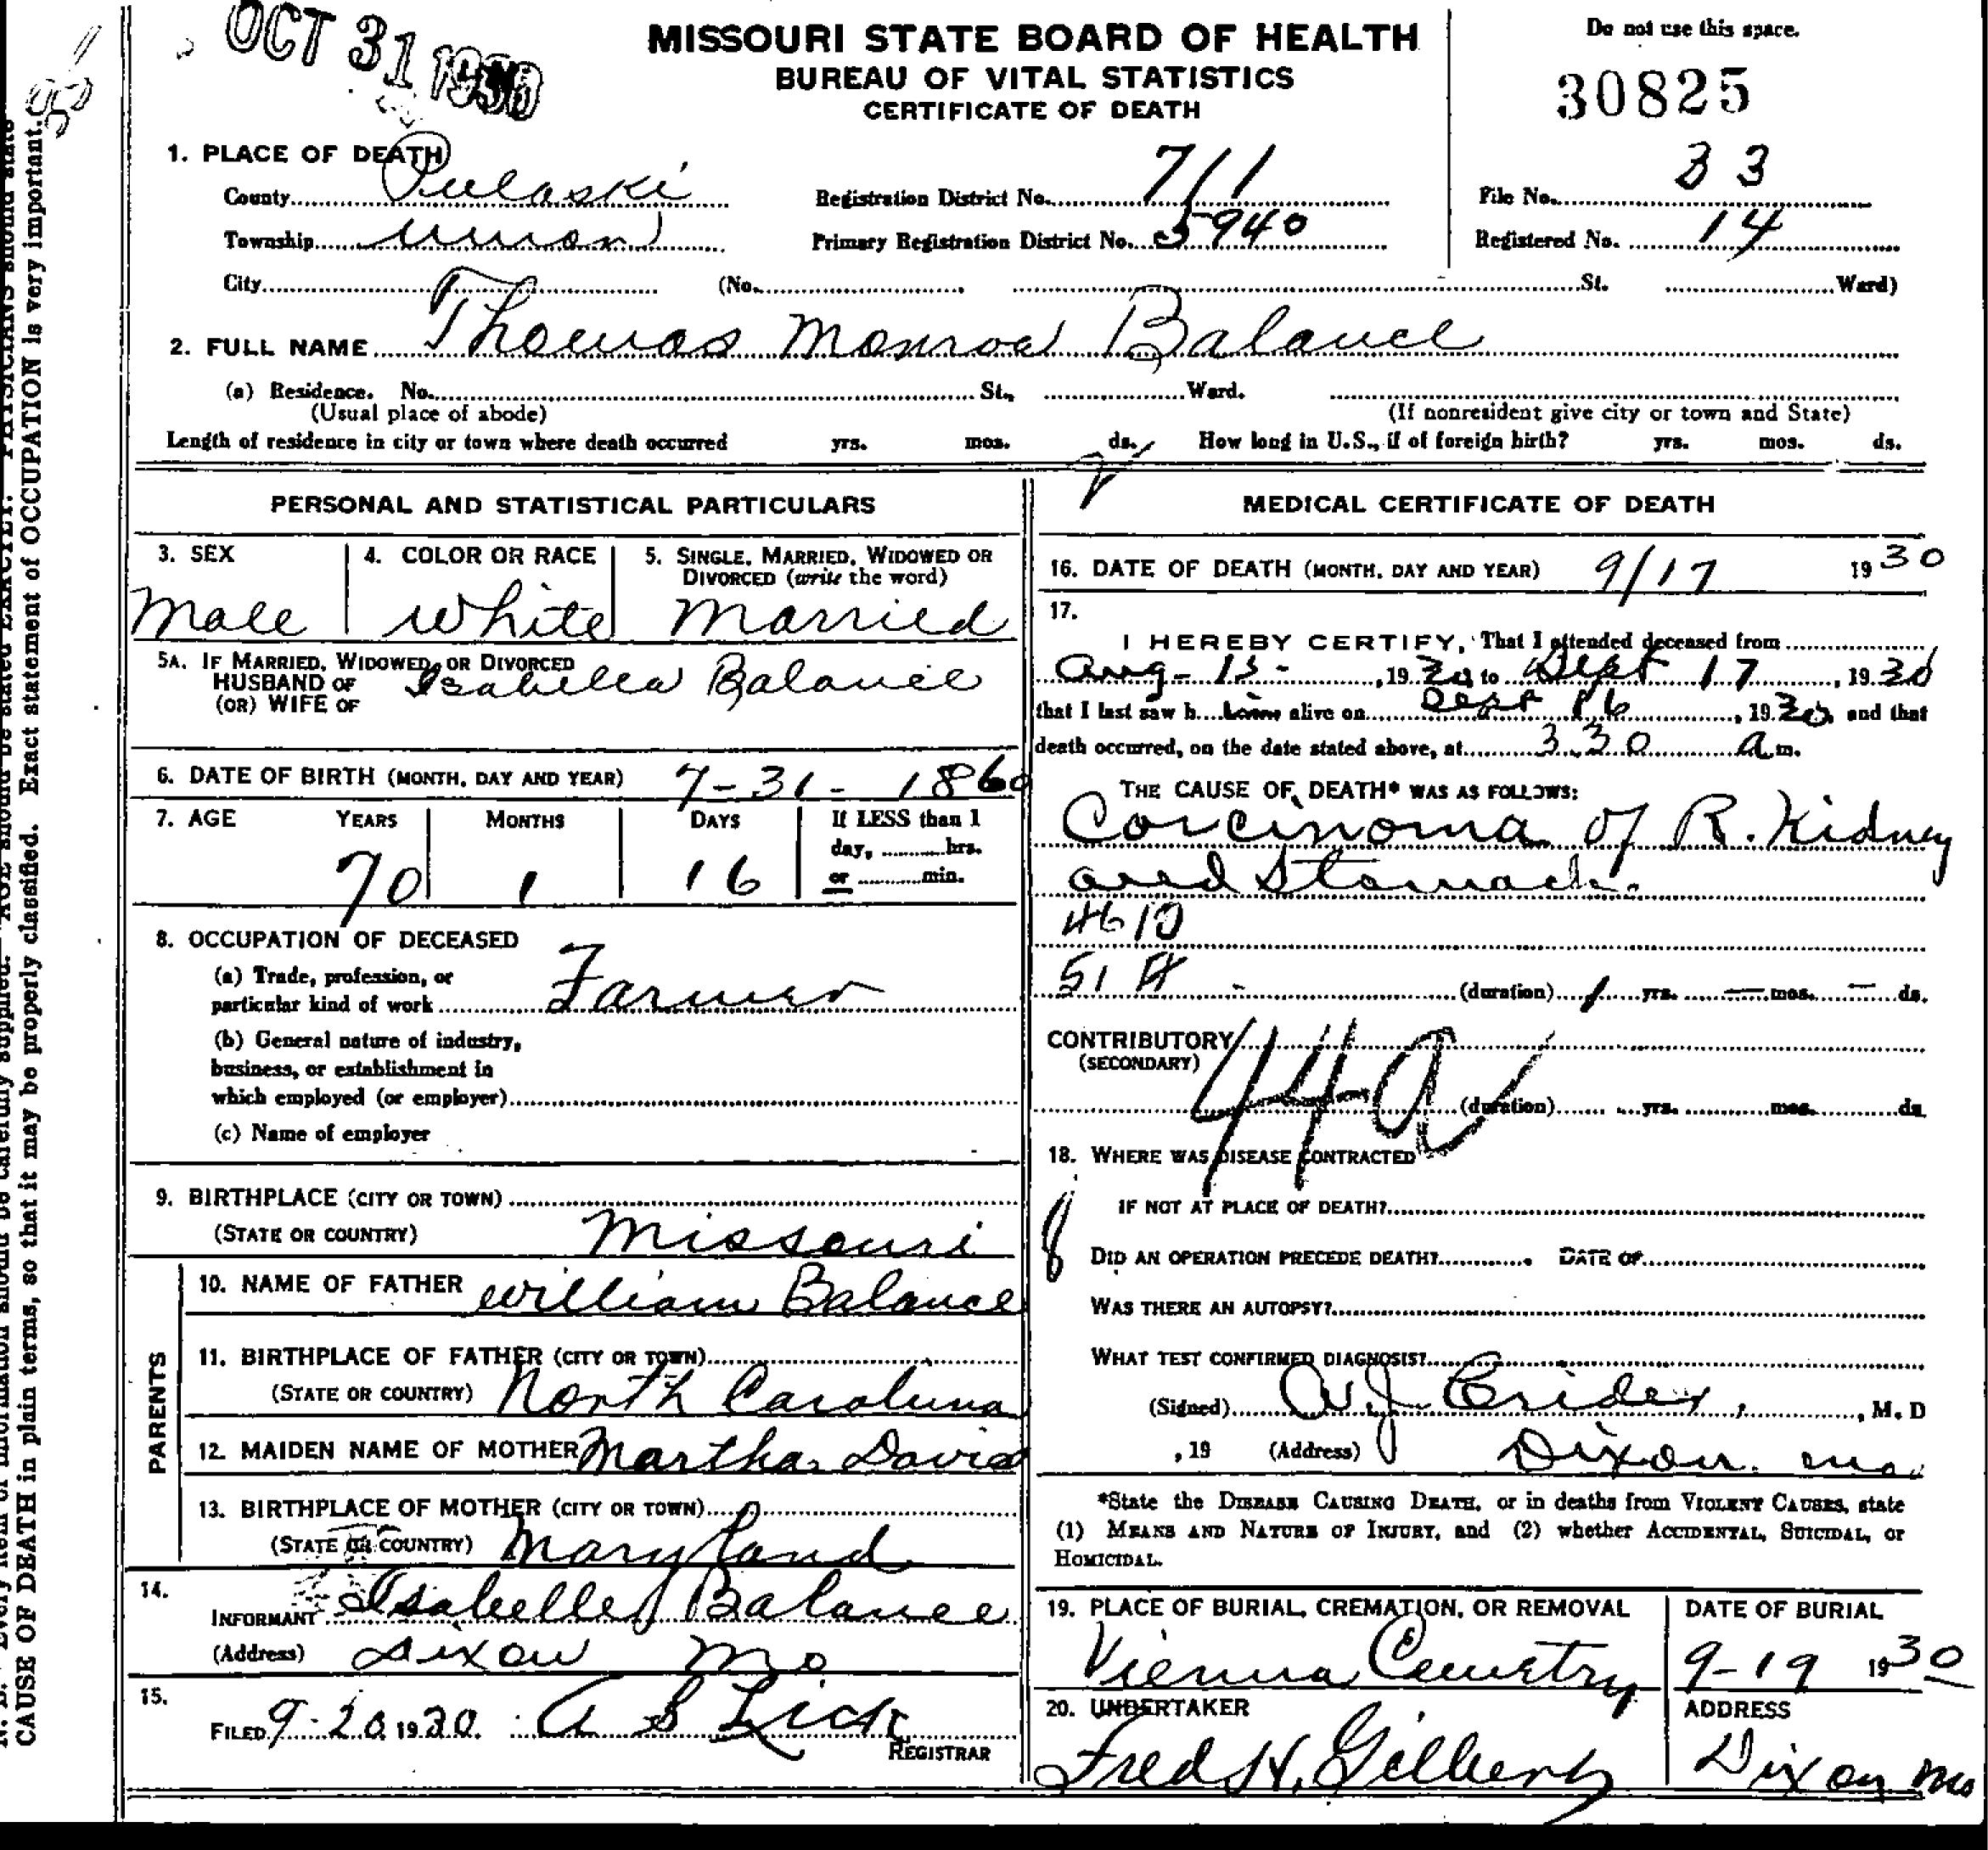 OCT 31 1930
MISSOURI STATE BOARD OF HEALTH
BUREAU OF VITAL STATISTICS
CERTIFICATE OF DEATH
Do not use this space.
30825
1. PLACE OF DEATH
County Pulaski Registration District No. 711 File No. 33
Township Union Primary Registration District No. 5940 Registered No. 14
City (No. St. Ward)
2. FULL NAME Thomas Monroe Balance
(a) Residence. No. St., Ward.
(Usual place of abode) (If nonresident give city or town and State)
Length of residence in city or town where death occurred yrs. mos. ds. How long in U.S., if of foreign birth? yrs. mos. ds.
PERSONAL AND STATISTICAL PARTICULARS
3. SEX 4. COLOR OR RACE 5. SINGLE, MARRIED, WIDOWED OR
DIVORCED (write the word)
Male White Married
5A. IF MARRIED, WIDOWED, OR DIVORCED
HUSBAND OF Isabella Balance
(OR) WIFE OF
6. DATE OF BIRTH (MONTH, DAY AND YEAR) 7-31-1860
7. AGE YEARS MONTHS DAYS If LESS than 1
day, hrs.
70 1 16 or min.
8. OCCUPATION OF DECEASED
(a) Trade, profession, or
particular kind of work Farmer
(b) General nature of industry,
business, or establishment in
which employed (or employer)
(c) Name of employer
9. BIRTHPLACE (CITY OR TOWN)
(STATE OR COUNTRY) Missouri
PARENTS
10. NAME OF FATHER William Balance
11. BIRTHPLACE OF FATHER (CITY OR TOWN)
(STATE OR COUNTRY) North Carolina
12. MAIDEN NAME OF MOTHER Martha Davis
13. BIRTHPLACE OF MOTHER (CITY OR TOWN)
(STATE OR COUNTRY) Maryland
14.
INFORMANT Isabelle Balance
(Address) Dixon Mo
15.
FILED 9-20, 1930. A S Lick
REGISTRAR
MEDICAL CERTIFICATE OF DEATH
16. DATE OF DEATH (MONTH, DAY AND YEAR) 9/17 1930
17.
I HEREBY CERTIFY, That I attended deceased from
Aug-15-, 1930 to Sept 17, 1930
that I last saw him alive on Sept 16, 1930, and that
death occurred, on the date stated above, at 3.30 a m.
THE CAUSE OF DEATH* WAS AS FOLLOWS:
Corcinoma of R. Kidney
and Stomach.
(duration) 1 yrs. — mos. — ds.
CONTRIBUTORY
(SECONDARY)
44a
(duration) yrs. mos. ds.
18. WHERE WAS DISEASE CONTRACTED
IF NOT AT PLACE OF DEATH?
DID AN OPERATION PRECEDE DEATH? DATE OF
WAS THERE AN AUTOPSY?
WHAT TEST CONFIRMED DIAGNOSIS?
(Signed) Crider, M. D
, 19 (Address) Dixon. Mo.
*State the DISEASE CAUSING DEATH, or in deaths from VIOLENT CAUSES, state
(1) MEANS AND NATURE OF INJURY, and (2) whether ACCIDENTAL, SUICIDAL, or
HOMICIDAL.
19. PLACE OF BURIAL, CREMATION, OR REMOVAL DATE OF BURIAL
Vienna Cemetry 9-19 1930
20. UNDERTAKER ADDRESS
Fred H. Gilbert Dixon Mo
CAUSE OF DEATH in plain terms, so that it may be properly classified. Exact statement of OCCUPATION is very important.